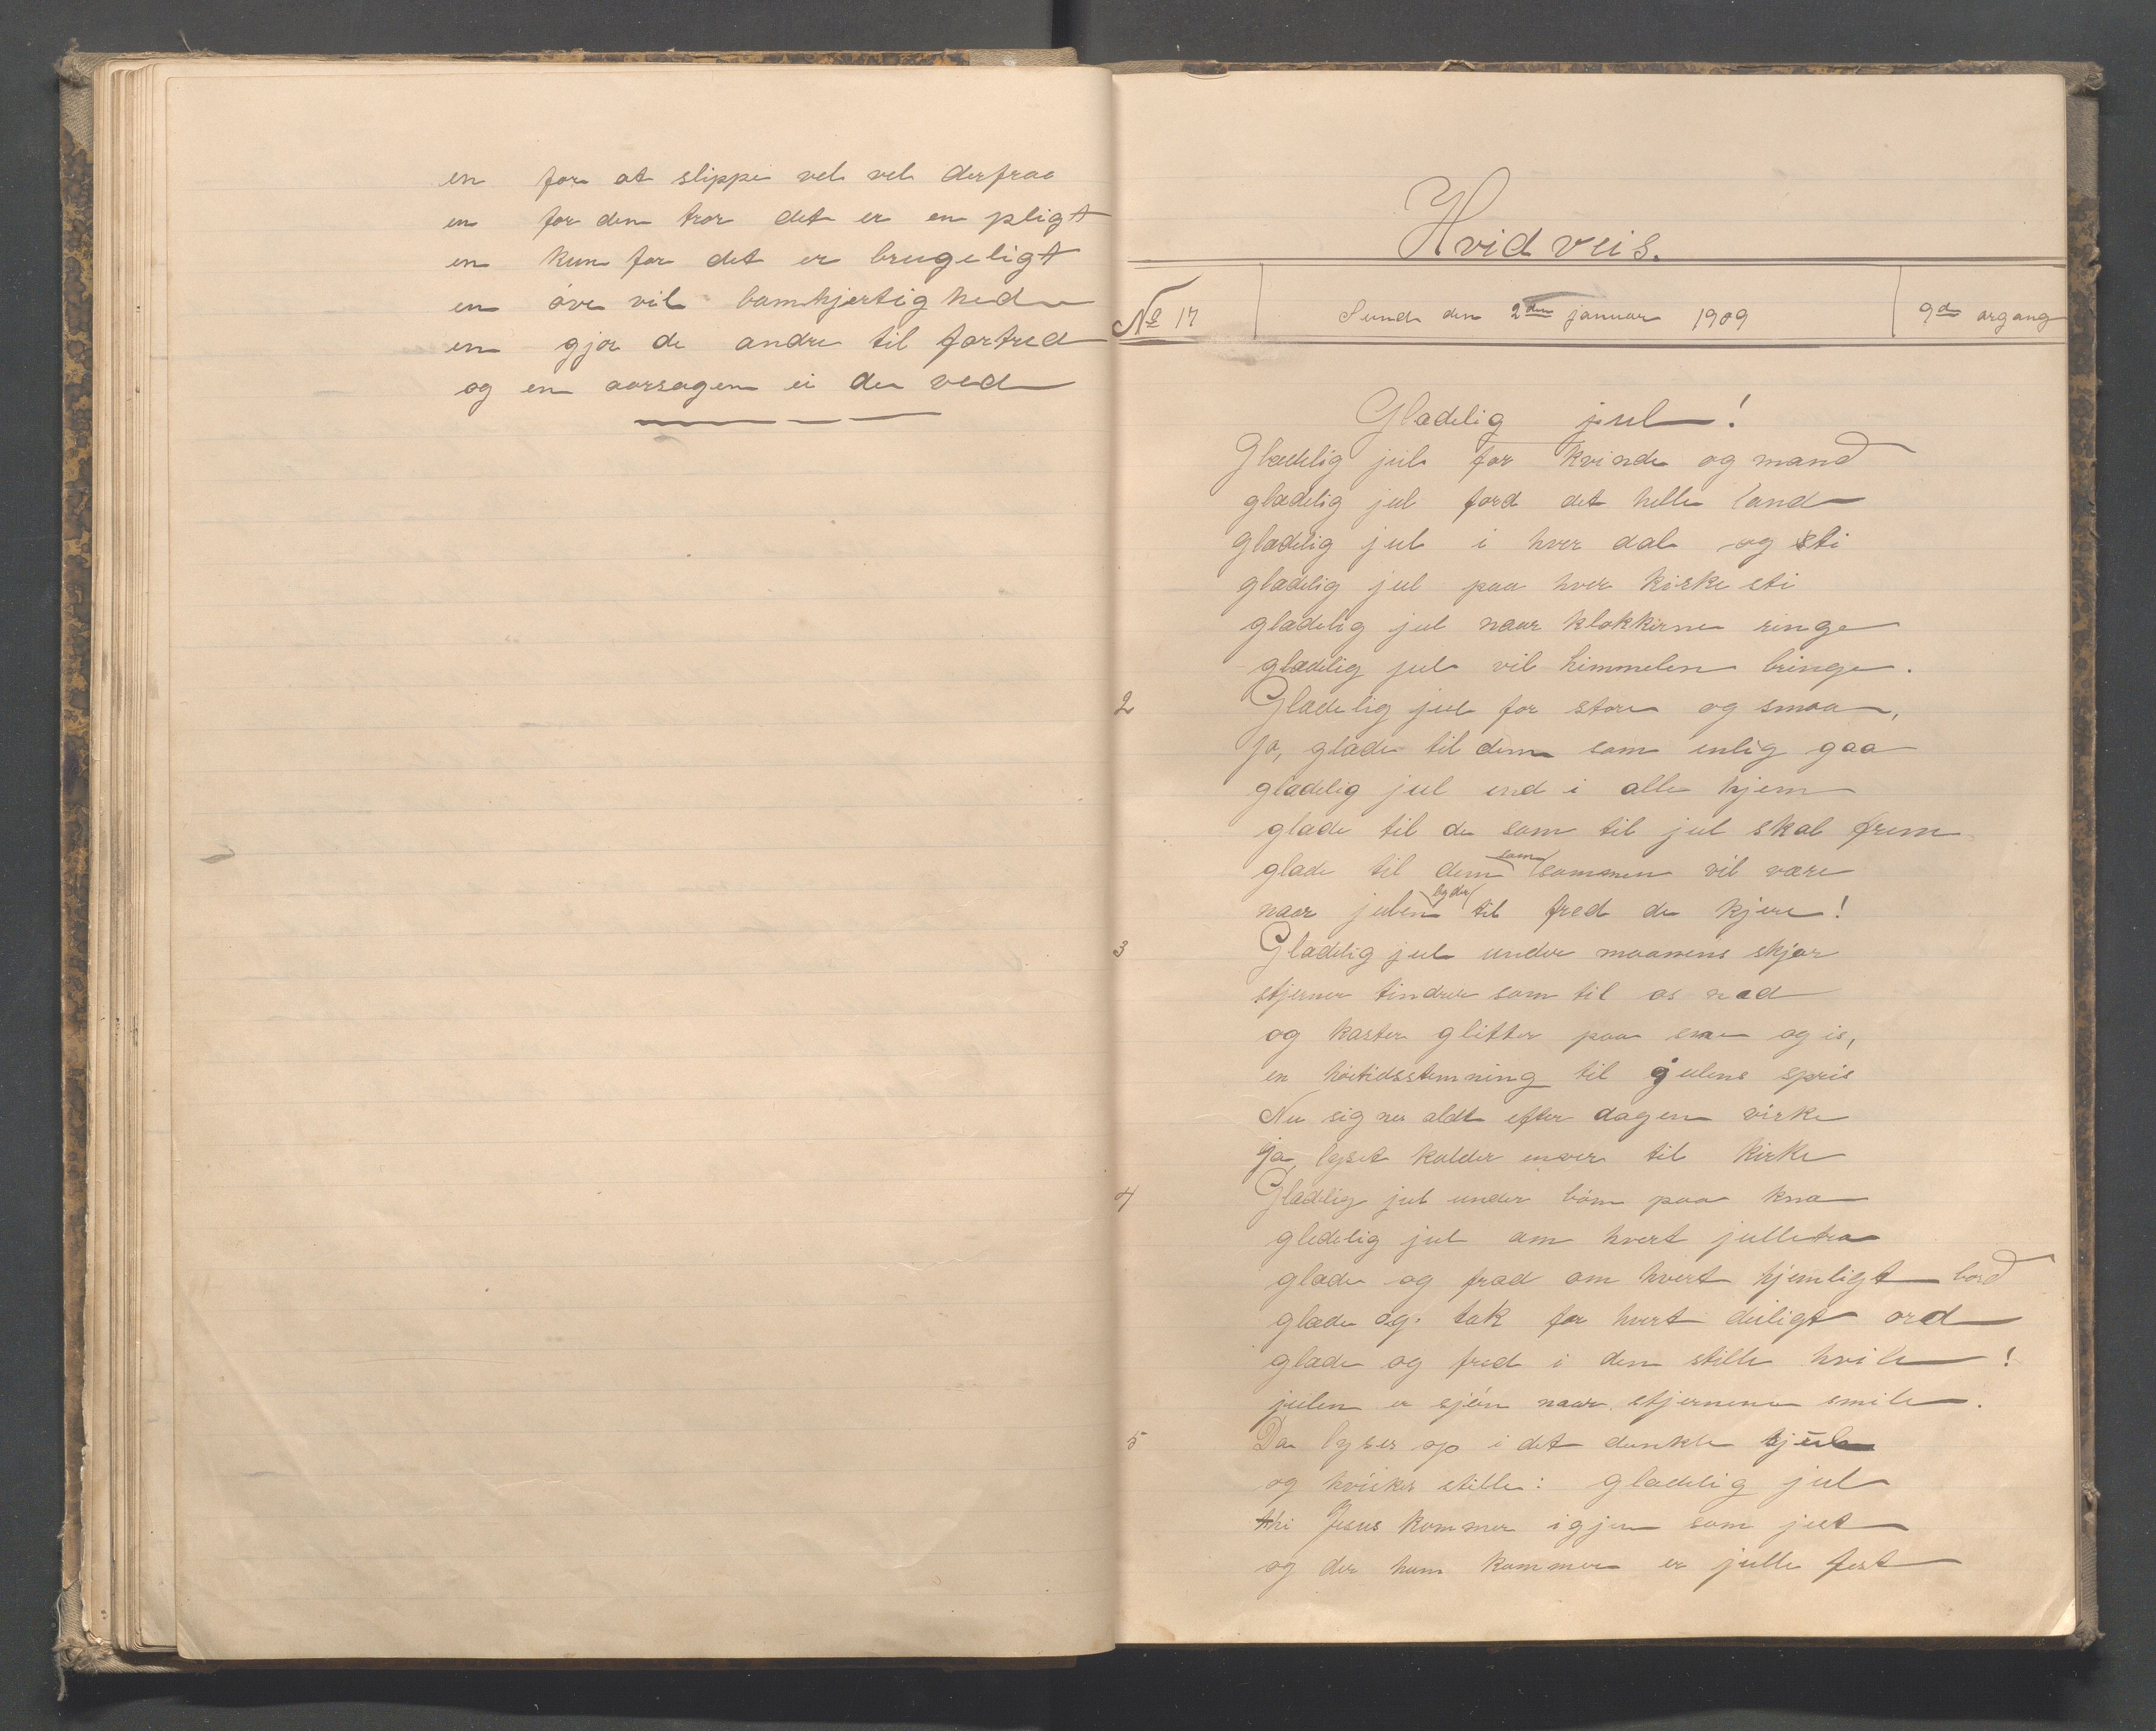 en for at slippe vel vel derfraa
en for den tror det er en pligt
en kun for det er brugeligt
en øve vil barmhjertighed
en gjør de andre til fortred
og en aarsagen ei der ved
Hvidveis.
No 17 Sund den 2den januar 1909 9de argang
Glædelig jul!
Glædelig jul for kvinde og mand
glædelig jul ford det helle land
glædelig jul i hver dal og sti
glædelig jul paa hver kirke sti
glædelig jul naar klokkerne ringe
glædelig jul vil himmelen bringe.
2 Glædelig jul for store og smaa,
ja, glæde til dem som enlig gaa
glædelig jul ind i alle hjem
glæde til de som til jul skal frem
glæde til dem som sammen vil være
naar julen byder til fred de kjere!
3 Glædelig jul under maanens skjær
stjerner tindrer som til os ned
og kaster glitter paa sne og is,
en høitidsstemning til julens pris
Nu signer aldt efter dagen virke
ja, lyset kalder enver til kirke
4 Glædelig jul under børn paa knæ
gledelig jul om hvert julletræ
glæde og fred om hvert hjemligt bord
glæde og tak for hvert deiligt ord
glæde og fred i den stille hvile!
julen er sjøn naar stjernene smile.
5 Da lyser op i det dunkle skjul
og hvisker stille: glædelig jul
thi Jesus kommer igjen som jest
og der han kommer er julle fest